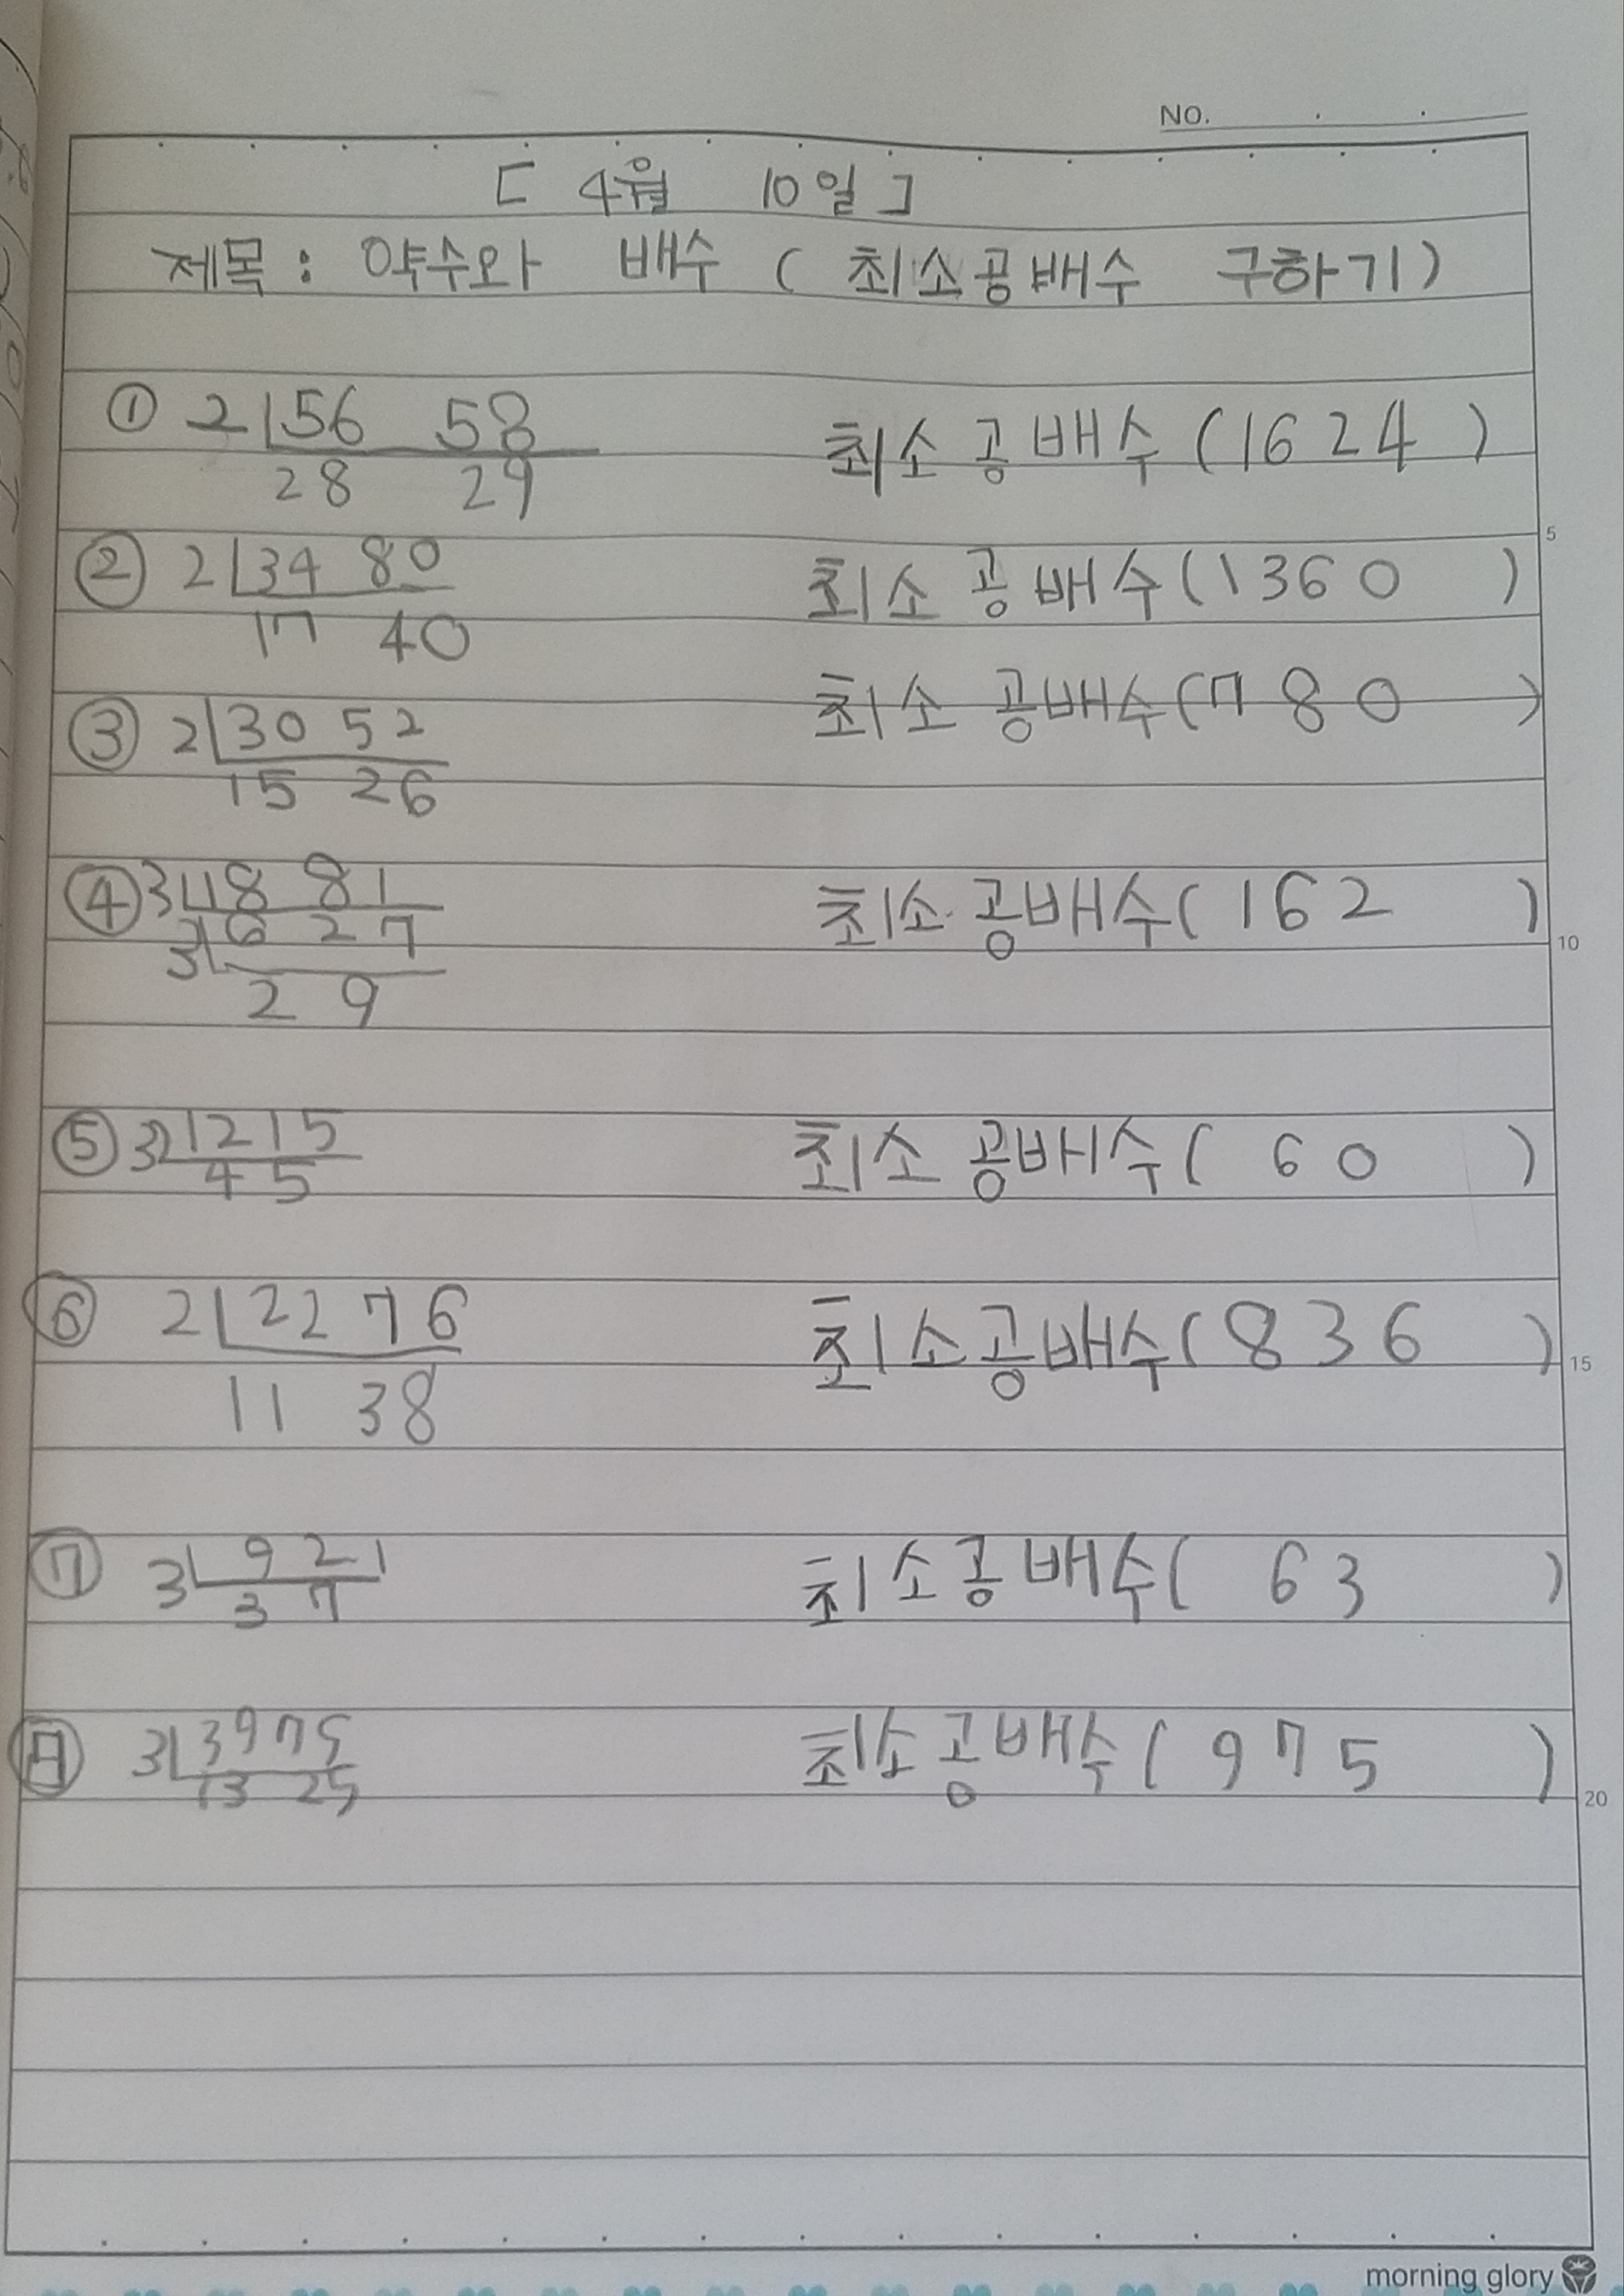 NO.
[ 4월 10일 ]
제목 : 약수와 배수 ( 최소공배수 구하기)
① 2 56 58 최소공배수 (1624 )
28 29
② 2 34 80 최소공배수(1360 )
17 40
③ 2 30 52 최소공배수(780 )
15 26
④ 3 18 81 최소공배수( 162 )
3 6 27
2 9
⑤ 3 12 15 최소공배수( 60 )
4 5
⑥ 2 22 76 최소공배수(836 )
11 38
⑦ 3 9 21 최소공배수( 63 )
3 7
3 39 75 최소공배수( 975 )
13 25
5
10
15
20
morning glory